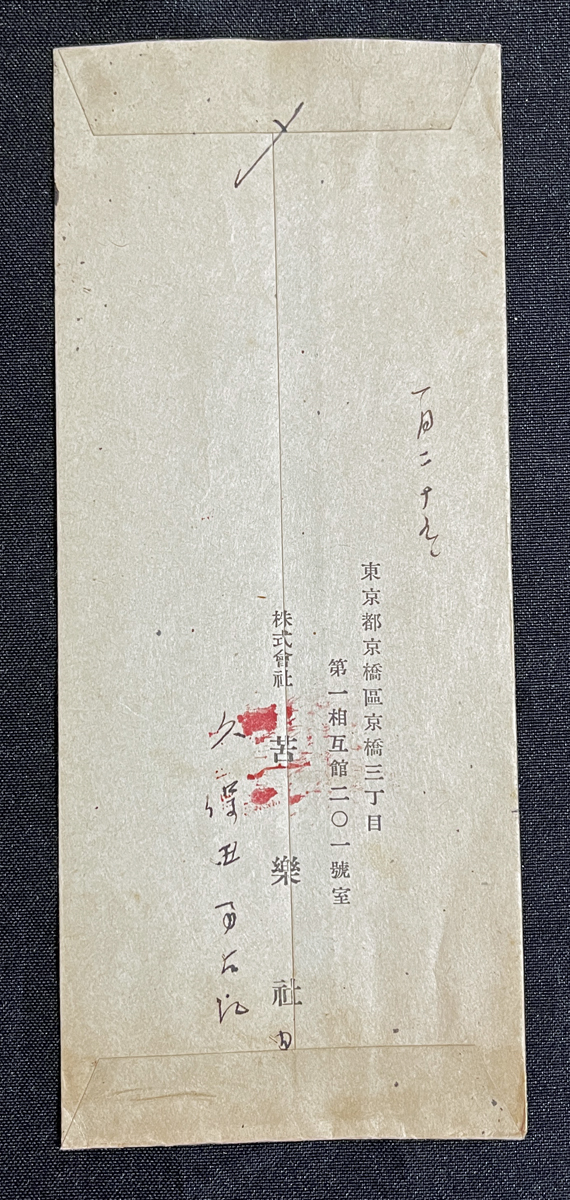 一月二十九
東京都京橋區京橋三丁目
第一相互館二〇一號室
株式會社 苦樂社内
久保